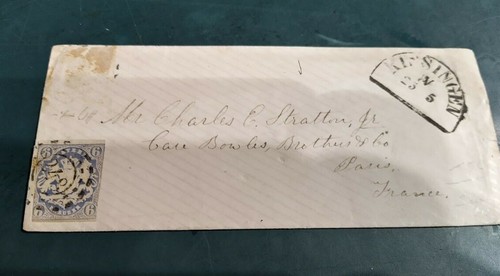 KISSINGEN
Mr Charles E. Stratton, Jr
Care Bowles, Brothers & Co
Paris.
France.
6 6
6 6